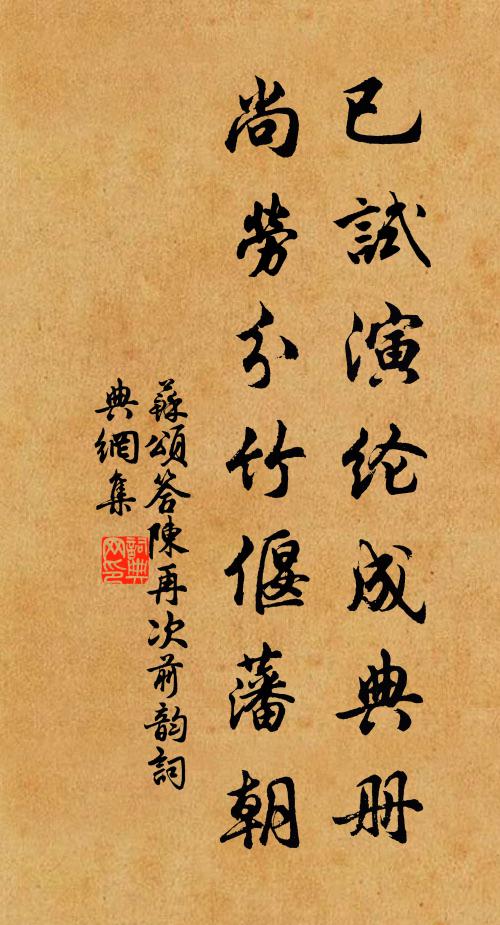 已試演纶成典册
尚勞分竹偃藩朝
蘇頌答陳再次前韵詞
典網集
詞典网印